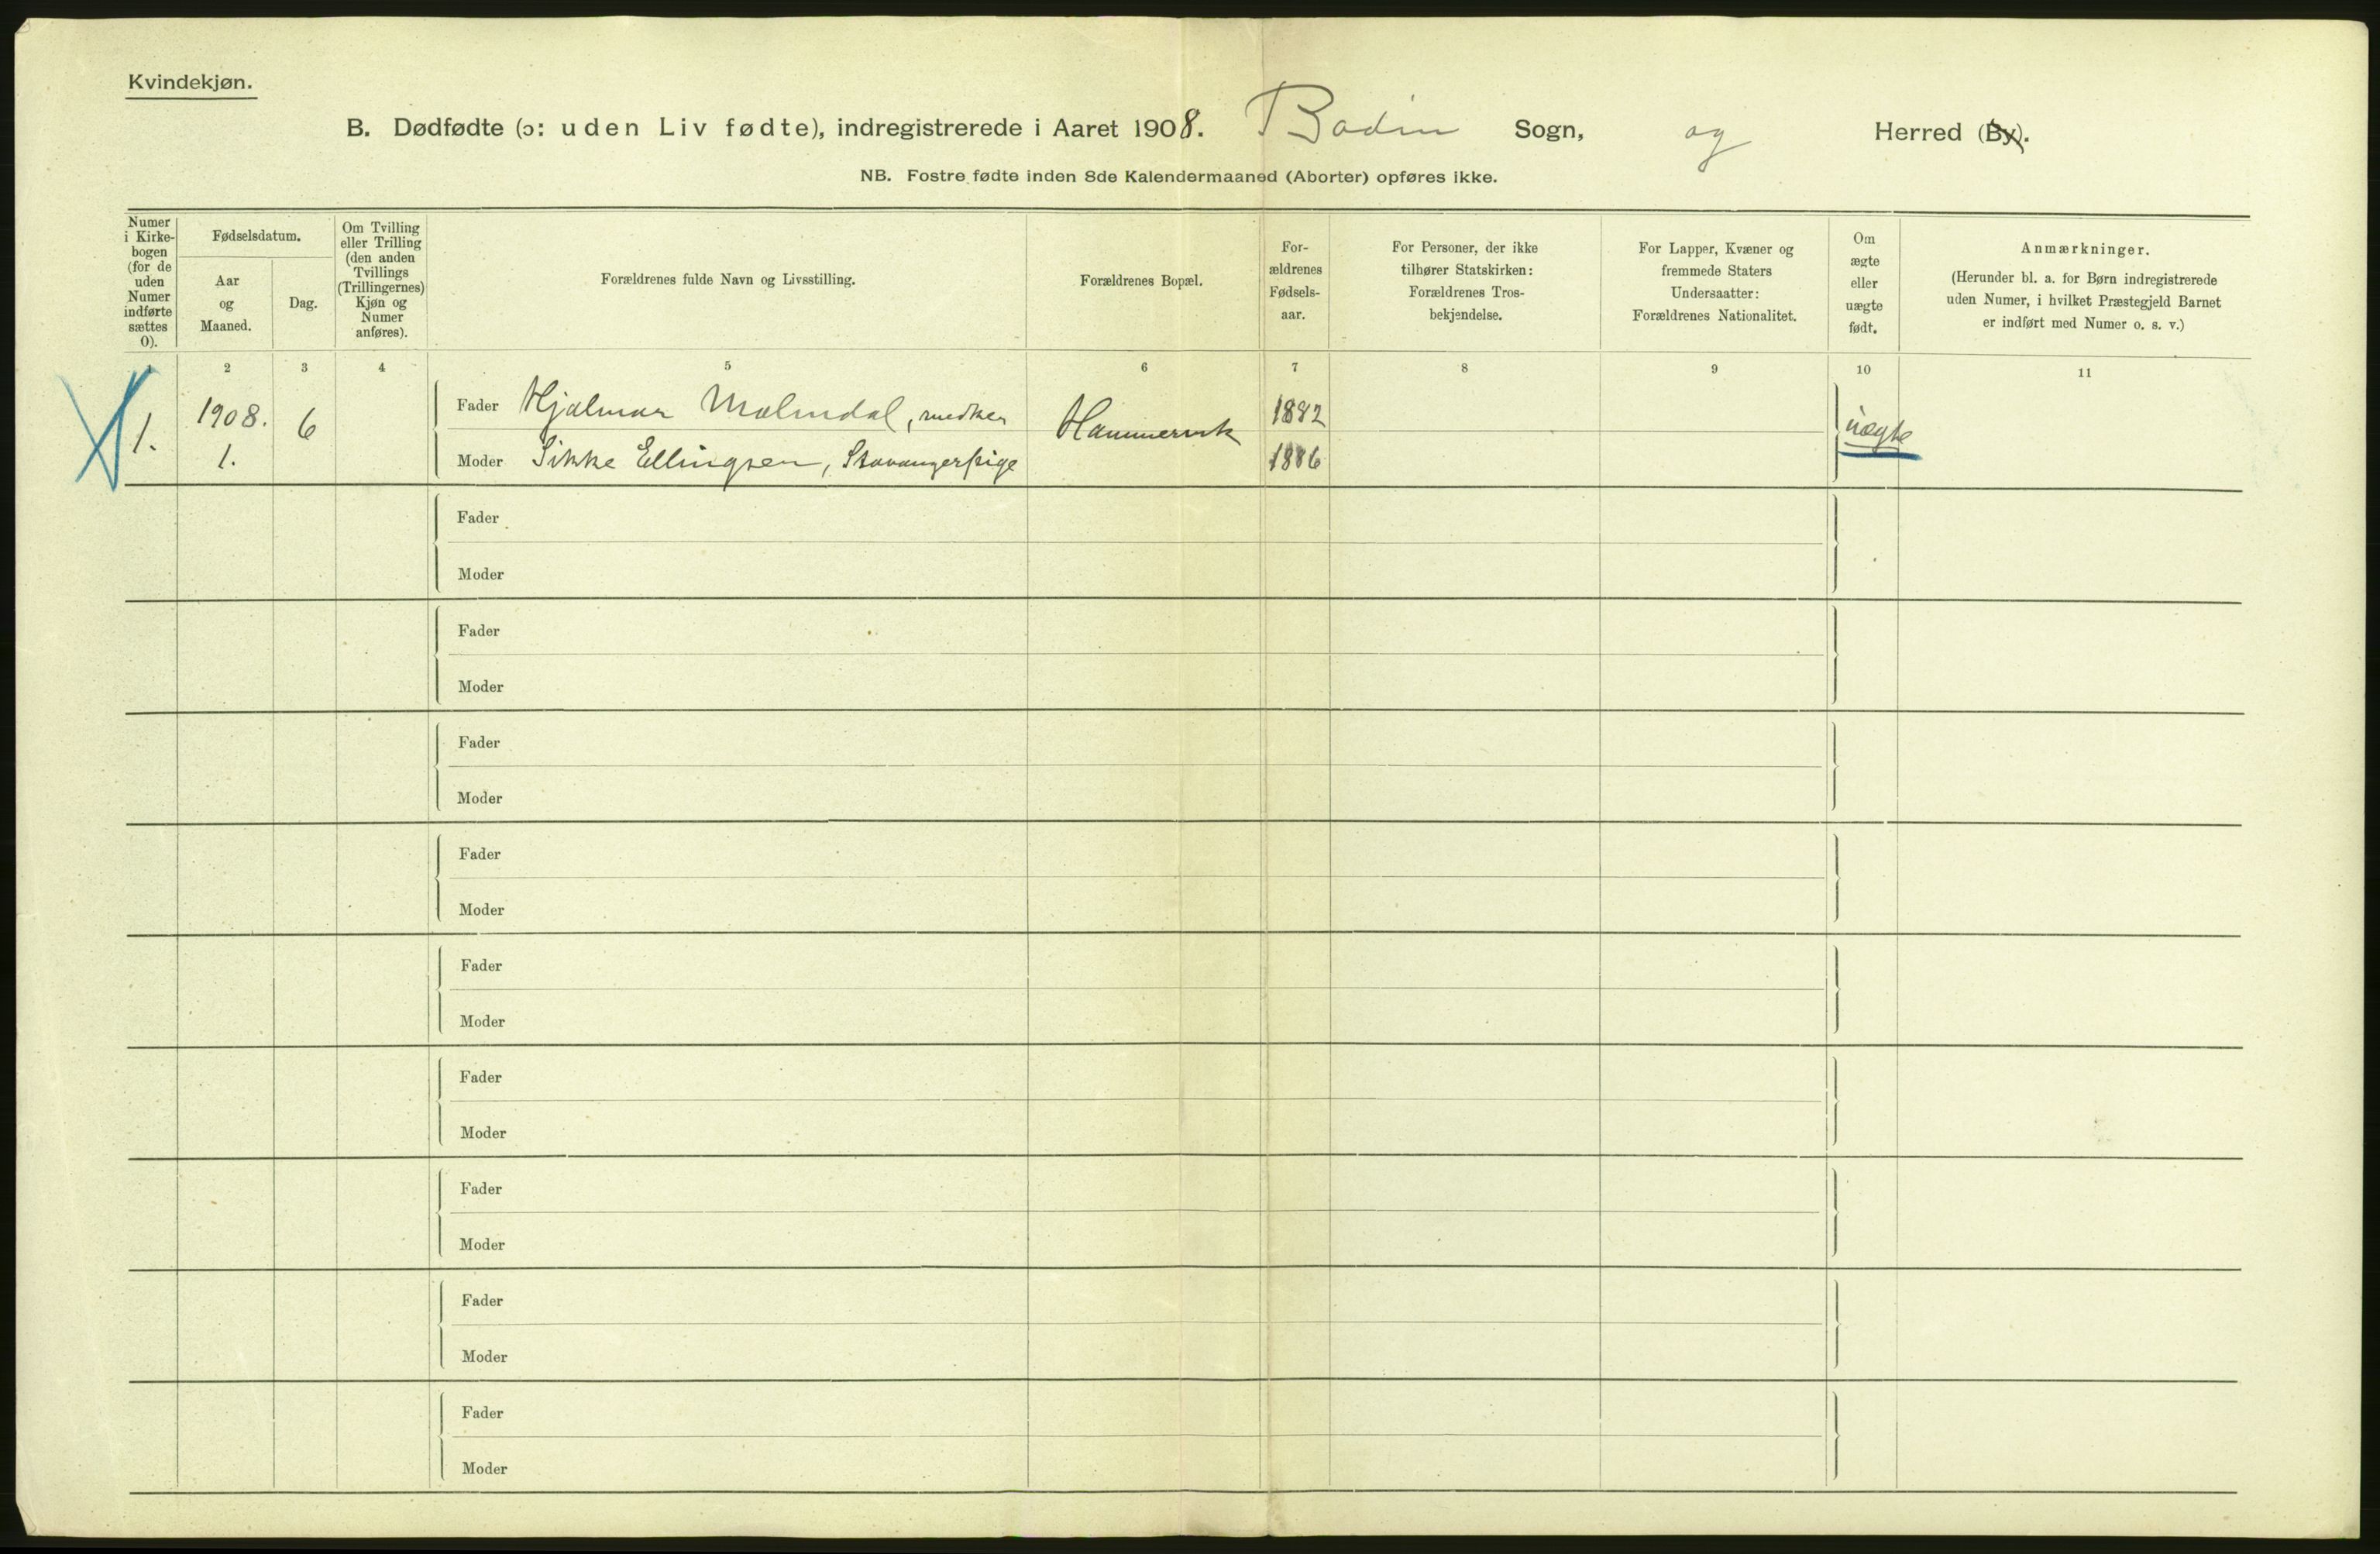 Kvindekjøn.
B. Dødfødte (ɔ: uden Liv fødte), indregistrerede i Aaret 1908. Bodin Sogn, og Herred (By).
NB. Fostre fødte inden 8de Kalendermaaned (Aborter) opføres ikke.
Numer i Kirke-bogen (for de uden Numer indførte sættes 0).
Fødselsdatum.
Aar og Maaned.
Dag.
Om Tvilling eller Trilling (den anden Tvillings (Trillingernes) Kjøn og Numer anføres).
Forældrenes fulde Navn og Livsstilling.
Forældrenes Bopæl.
For-ældrenes Fødsels-aar.
For Personer, der ikke tilhører Statskirken: Forældrenes Tros-bekjendelse.
For Lapper, Kvæner og fremmede Staters Undersaatter: Forældrenes Nationalitet.
Om ægte eller uægte født.
Anmærkninger.
(Herunder bl. a. for Børn indregistrerede uden Numer, i hvilket Præstegjeld Barnet er indført med Numer o. s. v.)
2 3 4 5 6 7 8 9 10 11
1. 1908. 1. 6
Fader Hjalmar Malmdal, snedker Hammervik 1882 uægte
Moder Sikke Ellingsen, Stavangerpige 1886
Fader
Moder
Fader
Moder
Fader
Moder
Fader
Moder
Fader
Moder
Fader
Moder
Fader
Moder
Fader
Moder
Fader
Moder